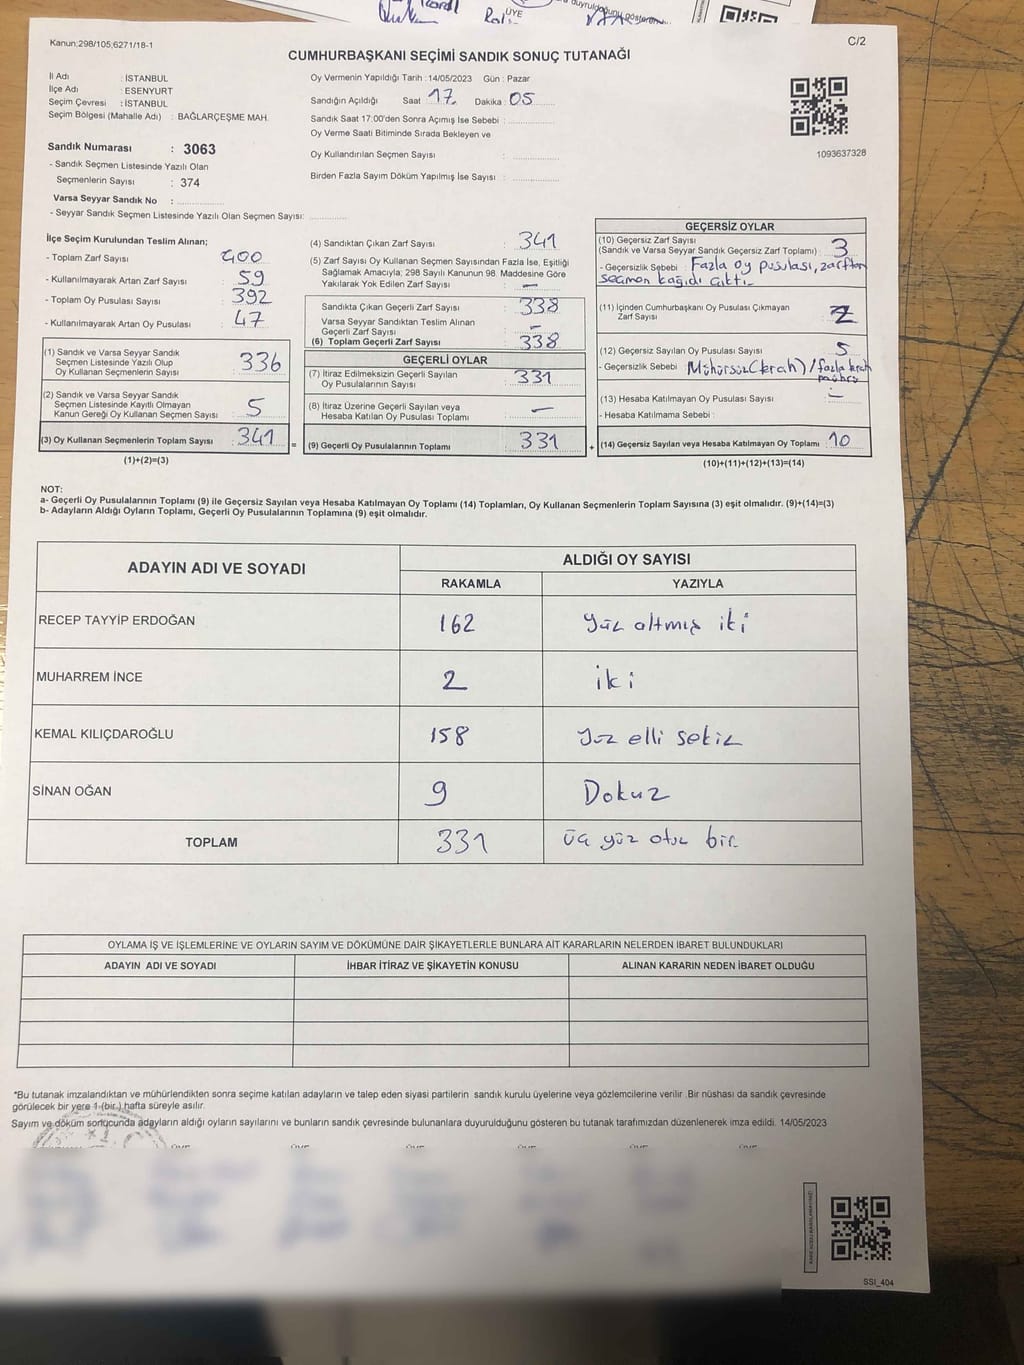 ÜYE
Kanun;298/105;6271/18-1
C/2
CUMHURBAŞKANI SEÇİMİ SANDIK SONUÇ TUTANAĞI
İl Adı : İSTANBUL
İlçe Adı : ESENYURT
Seçim Çevresi : İSTANBUL
Seçim Bölgesi (Mahalle Adı) : BAĞLARÇEŞME MAH.
Oy Vermenin Yapıldığı Tarih : 14/05/2023 Gün : Pazar
Sandığın Açıldığı Saat 17. Dakika : 05
Sandık Saat 17:00'den Sonra Açımış İse Sebebi :
Oy Verme Saati Bitiminde Sırada Bekleyen ve
Oy Kullandırılan Seçmen Sayısı :
Birden Fazla Sayım Döküm Yapılmış İse Sayısı :
1093637328
Sandık Numarası : 3063
- Sandık Seçmen Listesinde Yazılı Olan
Seçmenlerin Sayısı : 374
Varsa Seyyar Sandık No :
- Seyyar Sandık Seçmen Listesinde Yazılı Olan Seçmen Sayısı:
İlçe Seçim Kurulundan Teslim Alınan;
- Toplam Zarf Sayısı : 400
- Kullanılmayarak Artan Zarf Sayısı : 59
- Toplam Oy Pusulası Sayısı : 392
- Kullanılmayarak Artan Oy Pusulası : 47
(1) Sandık ve Varsa Seyyar Sandık
Seçmen Listesinde Yazılı Olup
Oy Kullanan Seçmenlerin Sayısı : 336
(2) Sandık ve Varsa Seyyar Sandık
Seçmen Listesinde Kayıtlı Olmayan
Kanun Gereği Oy Kullanan Seçmen Sayısı : 5
(3) Oy Kullanan Seçmenlerin Toplam Sayısı : 341
(1)+(2)=(3)
(4) Sandıktan Çıkan Zarf Sayısı : 341
(5) Zarf Sayısı Oy Kullanan Seçmen Sayısından Fazla İse, Eşitliği
Sağlamak Amacıyla; 298 Sayılı Kanunun 98. Maddesine Göre
Yakılarak Yok Edilen Zarf Sayısı : —
Sandıkta Çıkan Geçerli Zarf Sayısı : 338
Varsa Seyyar Sandıktan Teslim Alınan
Geçerli Zarf Sayısı : —
(6) Toplam Geçerli Zarf Sayısı : 338
GEÇERLİ OYLAR
(7) İtiraz Edilmeksizin Geçerli Sayılan
Oy Pusulalarının Sayısı : 331
(8) İtiraz Üzerine Geçerli Sayılan veya
Hesaba Katılan Oy Pusulası Toplamı : —
= (9) Geçerli Oy Pusulalarının Toplamı : 331
GEÇERSİZ OYLAR
(10) Geçersiz Zarf Sayısı
(Sandık ve Varsa Seyyar Sandık Geçersiz Zarf Toplamı) : 3
- Geçersizlik Sebebi : Fazla oy pusulası, zarftan
seçmen kağıdı çıktı.
(11) İçinden Cumhurbaşkanı Oy Pusulası Çıkmayan
Zarf Sayısı : 2
(12) Geçersiz Sayılan Oy Pusulası Sayısı : 5
- Geçersizlik Sebebi : Mühürsüz / fazla
mühür
(13) Hesaba Katılmayan Oy Pusulası Sayısı : —
- Hesaba Katılmama Sebebi :
+ (14) Geçersiz Sayılan veya Hesaba Katılmayan Oy Toplamı : 10
(10)+(11)+(12)+(13)=(14)
NOT:
a- Geçerli Oy Pusulalarının Toplamı (9) ile Geçersiz Sayılan veya Hesaba Katılmayan Oy Toplamı (14) Toplamları, Oy Kullanan Seçmenlerin Toplam Sayısına (3) eşit olmalıdır. (9)+(14)=(3)
b- Adayların Aldığı Oyların Toplamı, Geçerli Oy Pusulalarının Toplamına (9) eşit olmalıdır.
ADAYIN ADI VE SOYADI
ALDIĞI OY SAYISI
RAKAMLA YAZIYLA
RECEP TAYYİP ERDOĞAN 162 Yüz altmış iki
MUHARREM İNCE 2 iki
KEMAL KILIÇDAROĞLU 158 Yüz elli sekiz
SİNAN OĞAN 9 Dokuz
TOPLAM 331 üç yüz otuz bir
OYLAMA İŞ VE İŞLEMLERİNE VE OYLARIN SAYIM VE DÖKÜMÜNE DAİR ŞİKAYETLERLE BUNLARA AİT KARARLARIN NELERDEN İBARET BULUNDUKLARI
ADAYIN ADI VE SOYADI İHBAR İTİRAZ VE ŞİKAYETİN KONUSU ALINAN KARARIN NEDEN İBARET OLDUĞU
*Bu tutanak imzalandıktan ve mühürlendikten sonra seçime katılan adayların ve talep eden siyasi partilerin sandık kurulu üyelerine veya gözlemcilerine verilir .Bir nüshası da sandık çevresinde
görülecek bir yere 1 (bir ) hafta süreyle asılır.
Sayım ve döküm sonucunda adayların aldığı oyların sayılarını ve bunların sandık çevresinde bulunanlara duyurulduğunu gösteren bu tutanak tarafımızdan düzenlenerek imza edildi. 14/05/2023
SSI_404